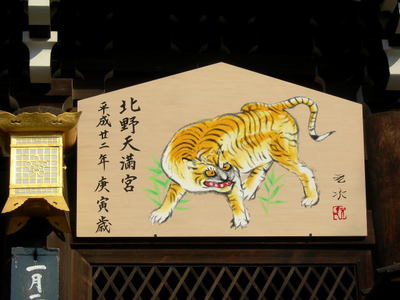 北野天満宮
平成廿二年 庚寅歳
一月